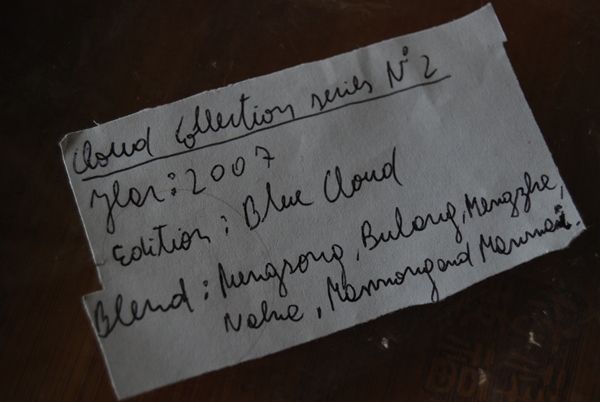 Cloud Collection series N° 2
Year: 2007
Edition: Blue Cloud
Blend: Mengsong, Bulang, Mengzhe,
Nahe, Mannong and Manmai.